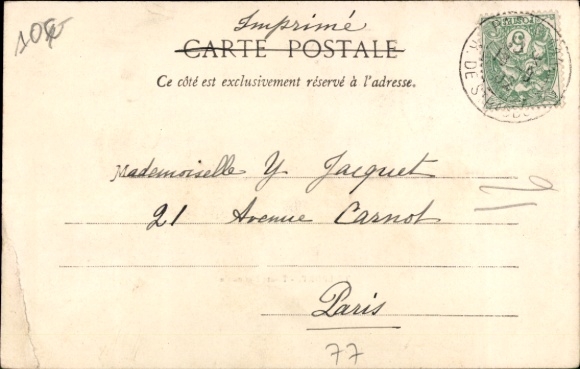 1050
Imprimé
CARTE POSTALE
Ce côté est exclusivement réservé à l'adresse.
Mademoiselle Y Jacquet
21 Avenue Carnot
Paris
77